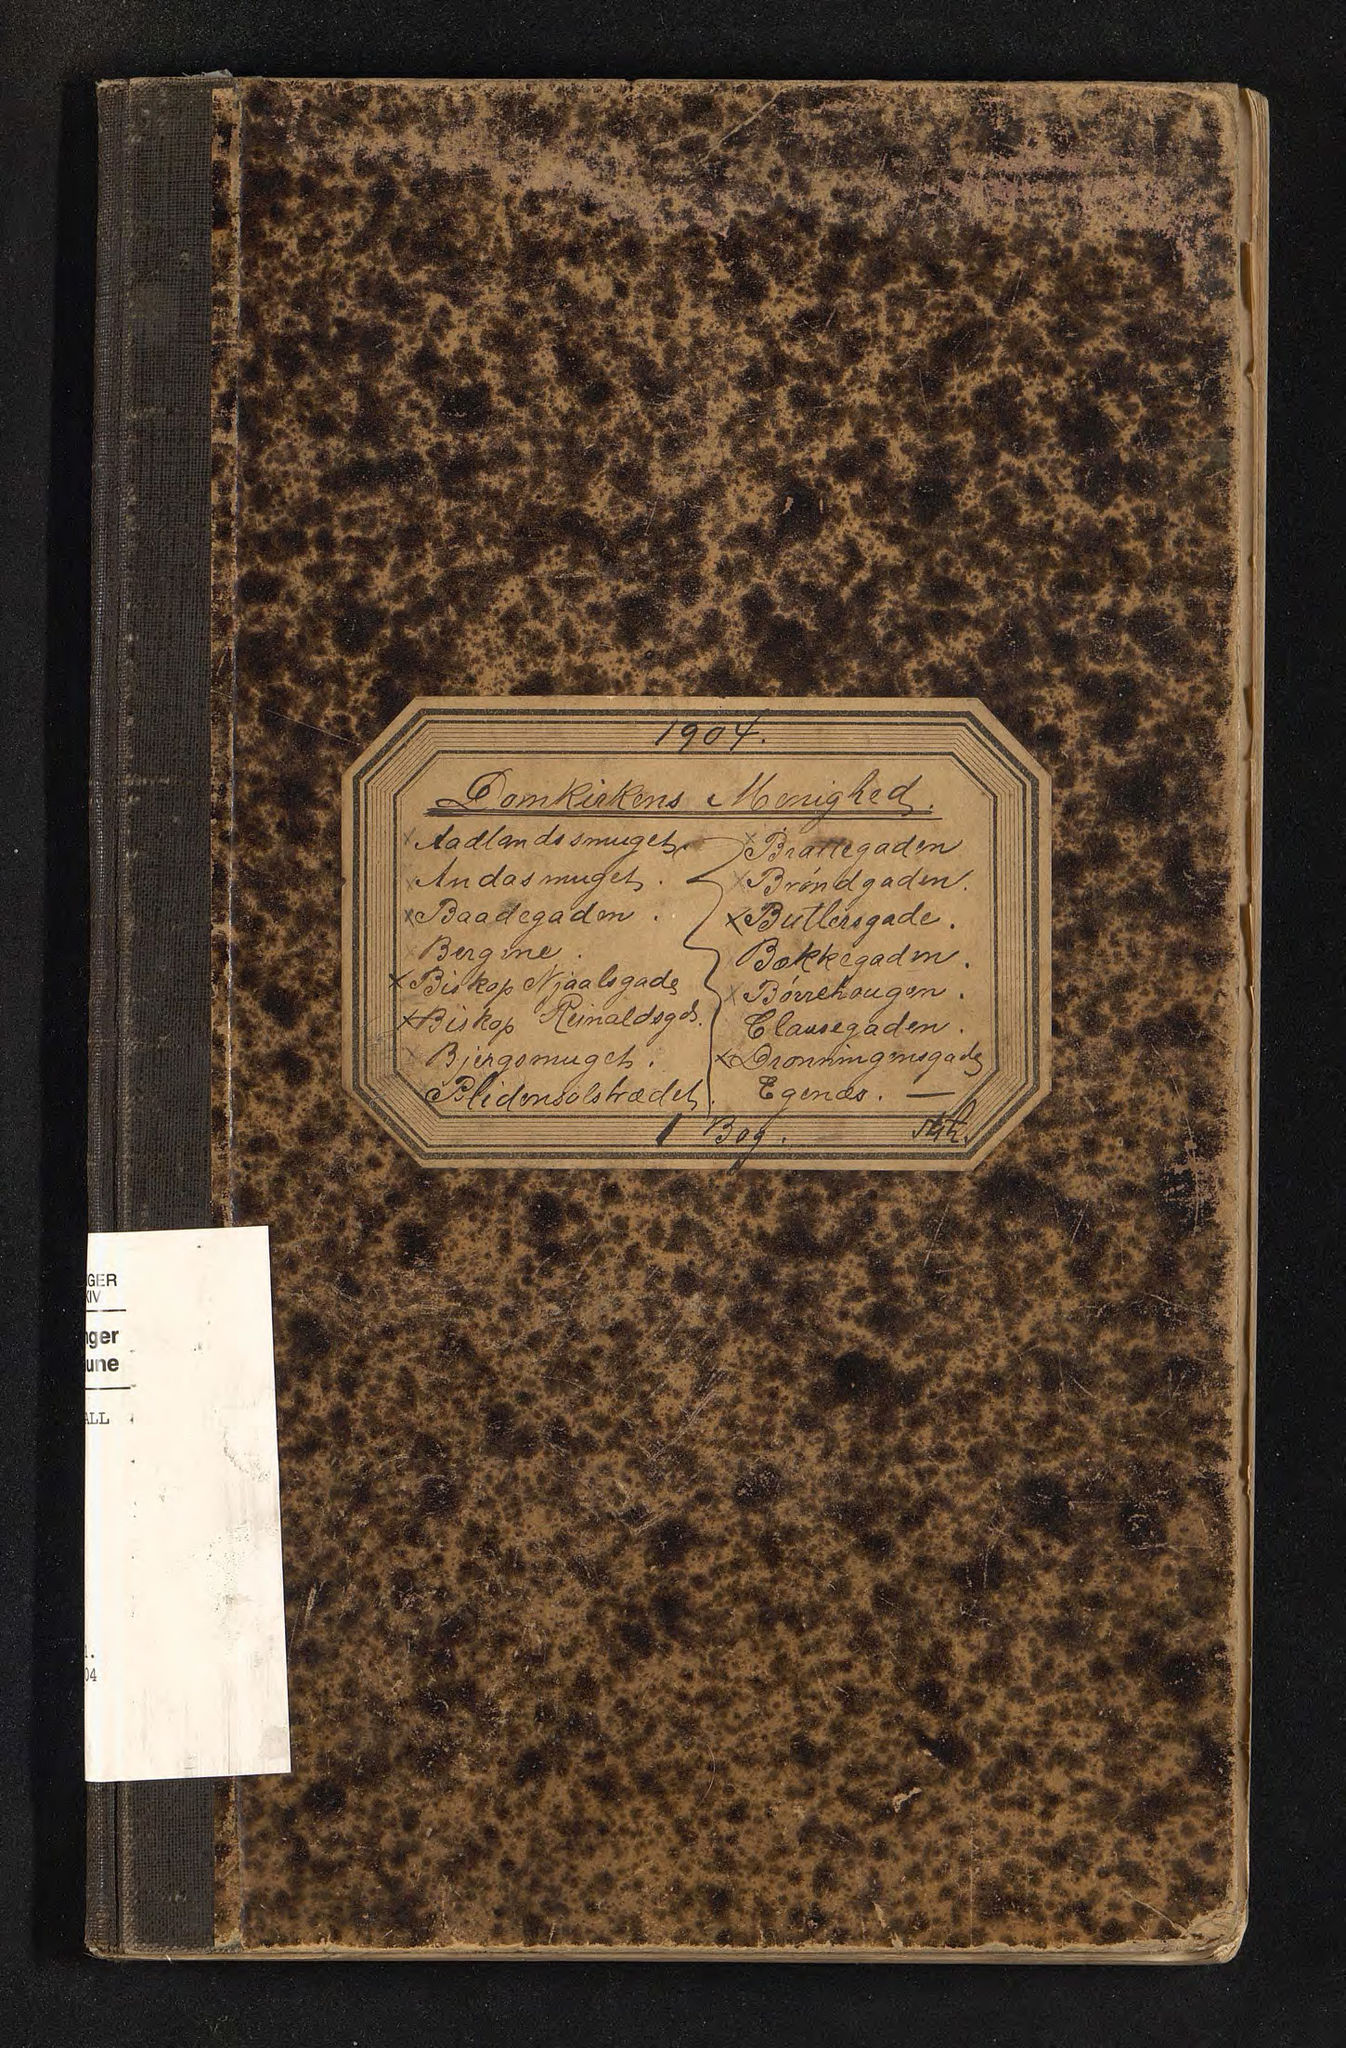 1904.
Domkirkens Menighed.
× Aadlandssmuget.
× Andasmuget.
× Baadegaden.
× Bergene.
× Biskop Njaalsgade
× Biskop Reinaldsgd.
× Bjergsmuget.
Blidensolstrædet.
× Brattegaden
× Brøndgaden.
× Butlersgade.
Bakkegaden.
× Børrehougen.
Clausegaden.
× Dronningensgade
Egenæs. —
1 Bog.
GER
KIV
nger
une
ALL
1.
04